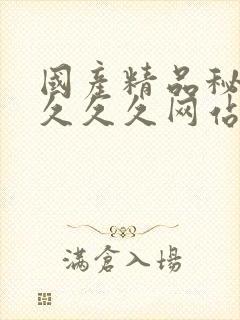 國產精品秘
久久久网佔
滿倉入場